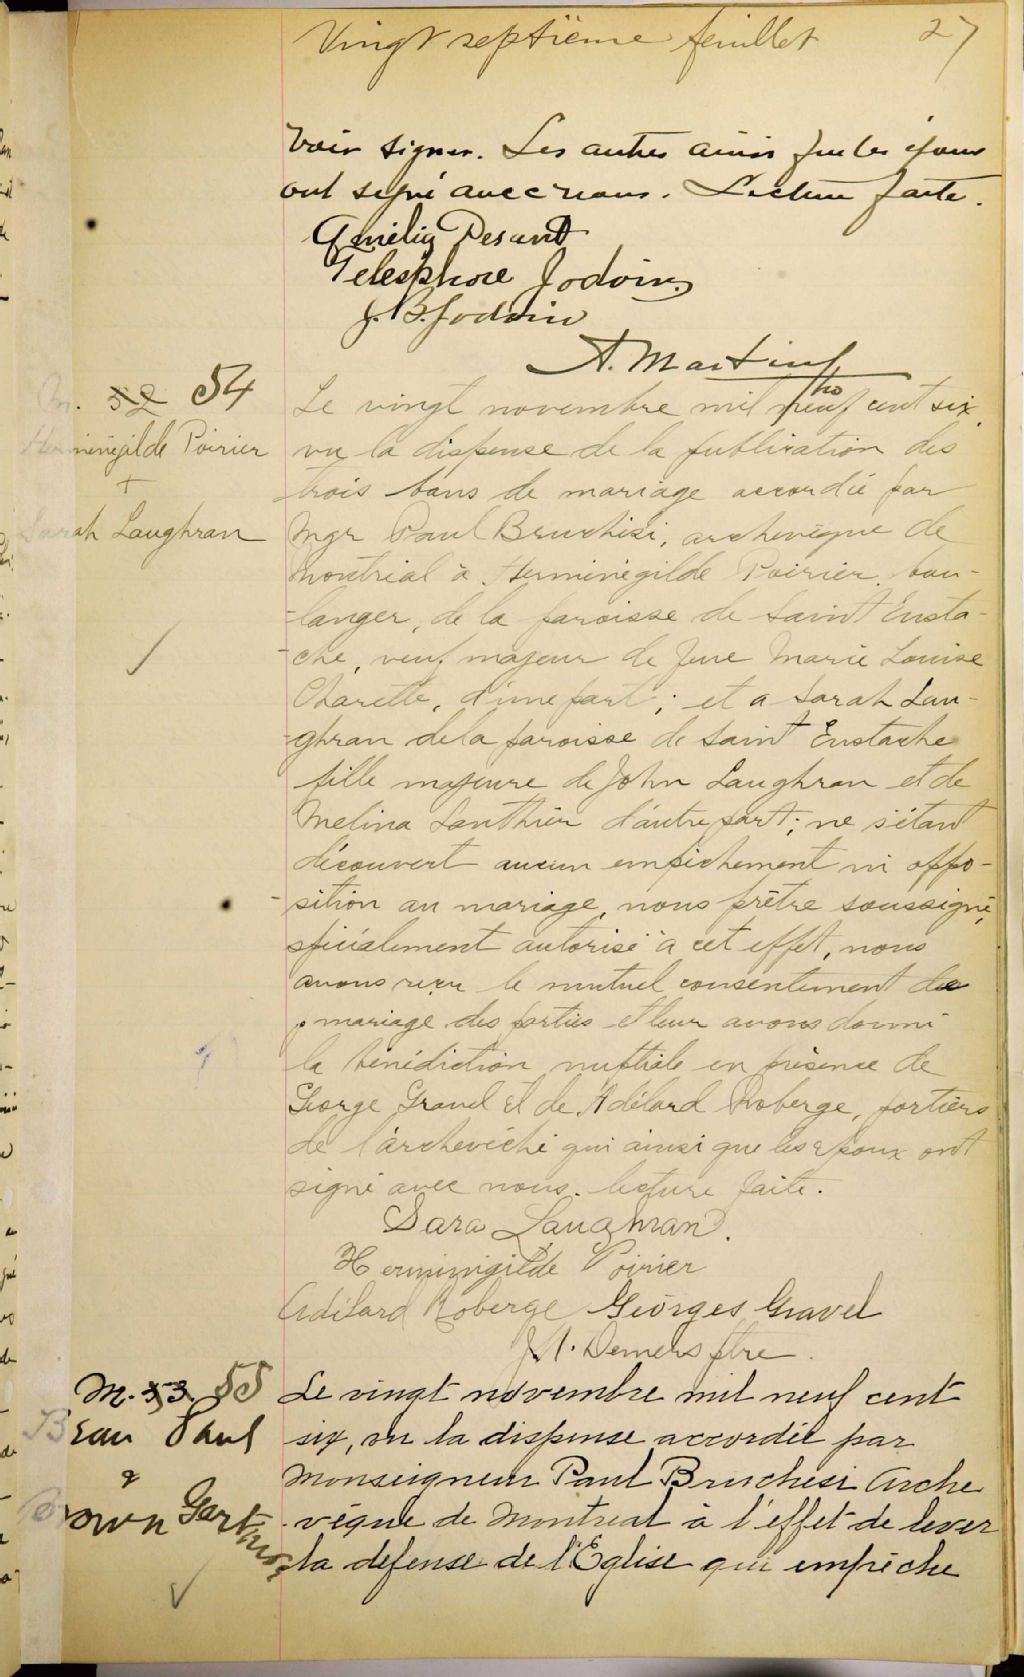 Vingt septième feuillet 27
voir signer. Les autres ainsi que les époux
ont signé avec nous. Lecture faite.
Amélia Pesant
Telesphore Jodoin
J. B. Jodoin
A. Martin
M. 52 54
Herménégilde Poirier
+
Sarah Laughran
Le vingt novembre mil neuf cent six
vu la dispense de la publication des
trois bans de mariage accordée par
Mgr Paul Bruchési, archevêque de
Montréal à Herménégilde Poirier, bou-
-langer, de la paroisse de Saint Eusta-
-che, veuf majeur de feue Marie Louise
Charette, d'une part; et a Sarah Lau-
-ghran de la paroisse de Saint Eustache
fille majeure de John Laughran et de
Melina Lanthier d'autre part; ne s'étant
découvert aucun empêchement ni oppo-
-sition au mariage, nous prêtre soussigné,
spécialement autorisé à cet effet, nous
avons reçu le mutuel consentement de
mariage des parties et leur avons donné
la bénédiction nuptiale en présence de
George Gravel et de Adélard Roberge, portiers
de l'archevêché qui ainsi que les époux ont
signé avec nous. lecture faite.
Sara Laugman.
Herminigilde Poirier
Adélard Roberge Georges Gravel
J. A. Demers ptre.
M. 53. 55
Brau Paul
&
Brown Gertrude
Le vingt novembre mil neuf cent
six, vu la dispense accordée par
Monseigneur Paul Bruchesi Arche
-vêque de Montreal à l'effet de lever
la défense de l'Eglise qui empêche